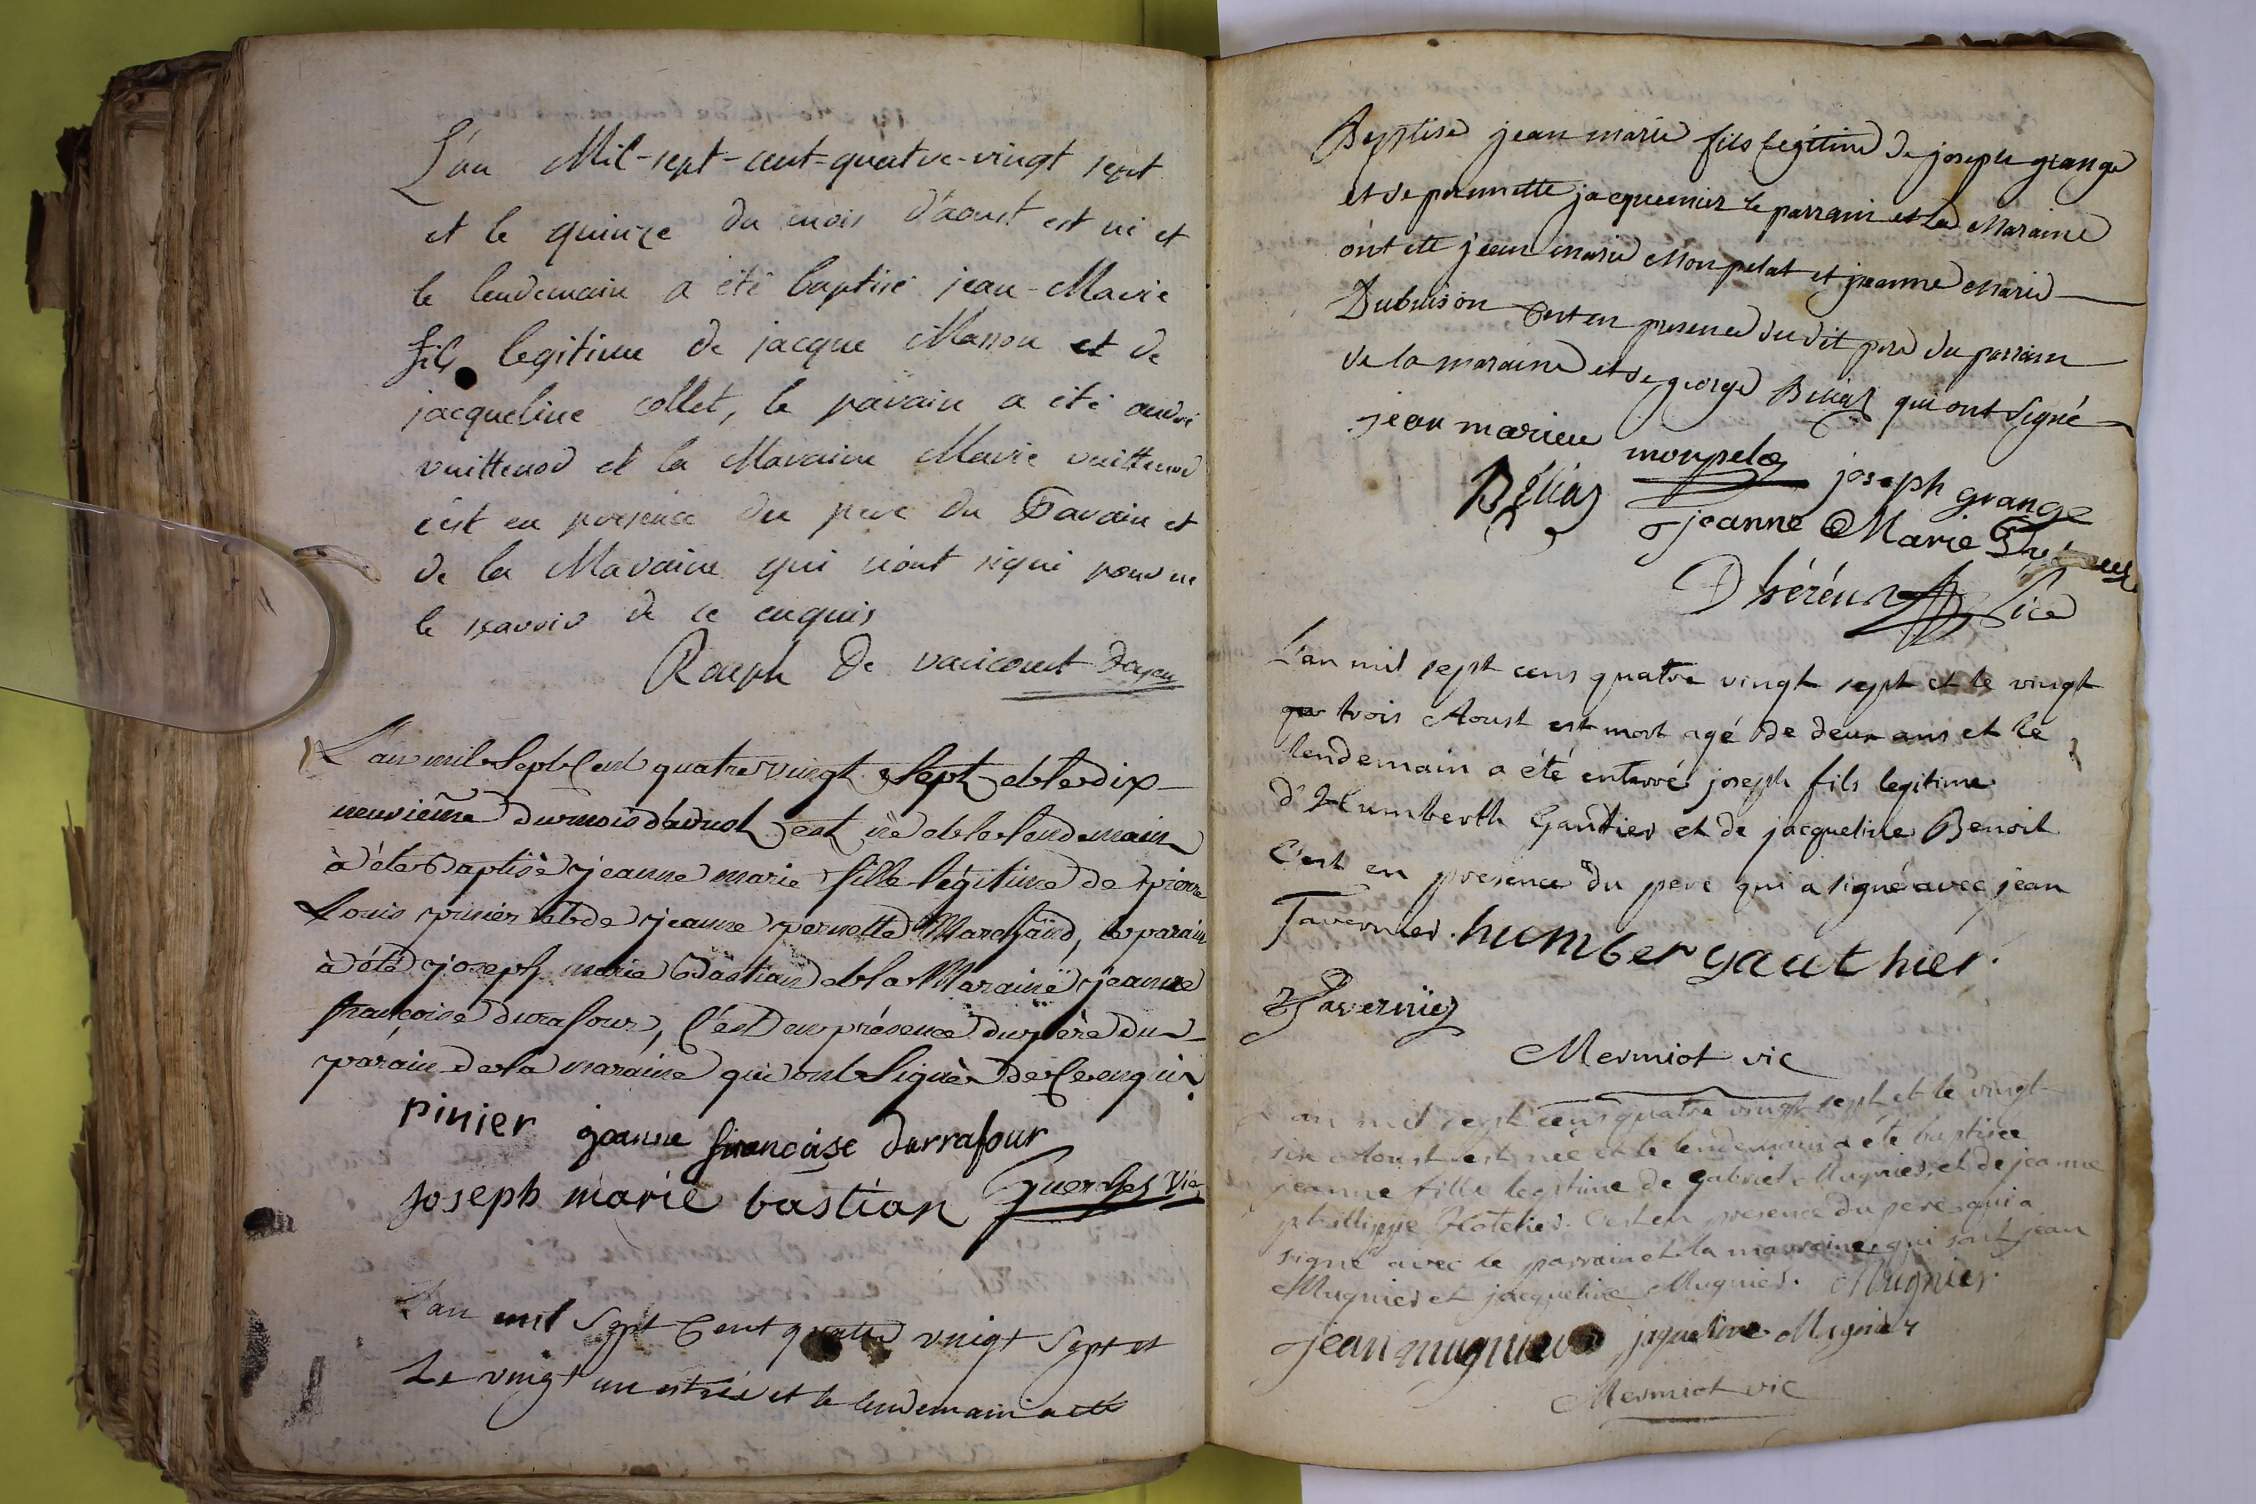 L'an Mil-sept-cent-quatre-vingt sept
et le quinze du mois d'aoust est né et
le lendemain a été baptisé jean-Marie
fils legitime de jacque Masson et de
jacqueline collet, le parain a été andré
vuittenod et la Maraine Marie vuittenod
c'est en presence du pere du Parain et
de la Maraine qui n'ont signé pour ne
le sçavoir de ce enquis
Roúph de varicourt doyen
L'an mil Sept Cent quatre vingt Sept et le dix
neuvième du mois d'aoust est né et le lendemain
à été Baptisé jeanne marie fille légitime de pierre
Louis pinier et de jeanne pernette Marchand, le parain
à été joseph marie Bastian et la Maraine jeanne
françoise durafour, C'est en présence du père du
parain de la maraine qui ont Signés de Ce enquis
pinier jeanne francoise durrafour
joseph marie bastian Guerches Vic
L'an mil Sept Cent quatre vingt Sept et
Le vingt un est née et le lendemain a été
Baptisé jean marie fils legitime de joseph grange
et de pernette jacquemier le parrain et la Maraine
ont été jean marie Monpelat et jeanne Marie
Dubuison C'est en presence du dit pere du parrain
de la maraine et de george Béliaz qui ont Signé
jean marieu monpela joseph grange
Béliaz jeanne Marie
Dhéréun Vice
L'an mil sept cens quatre vingt sept et le vingt
trois Aoust est mort agé de deux ans et le
lendemain a été enterré joseph fils legitime
d'Humberth Gautier et de jacqueline Benoit
C'est en presence du pere qui a signé avec jean
Tavernier. humber gauthier.
Taverniez
Mermiot vic
L'an mil sept cens quatre vingt sept et le vingt
six Aoust est née et le lendemain a été baptisée
jeanne fille legitime de gabriel Mugnier et de jeanne
phillippe Hotelier. C'est en presence du pere qui a
signé avec le parrain et la marraine qui sont jean
Mugnier et jacqueline Mugnier. Mugnier
jean mugnier jaqueline Mugnier
Mermiot vic